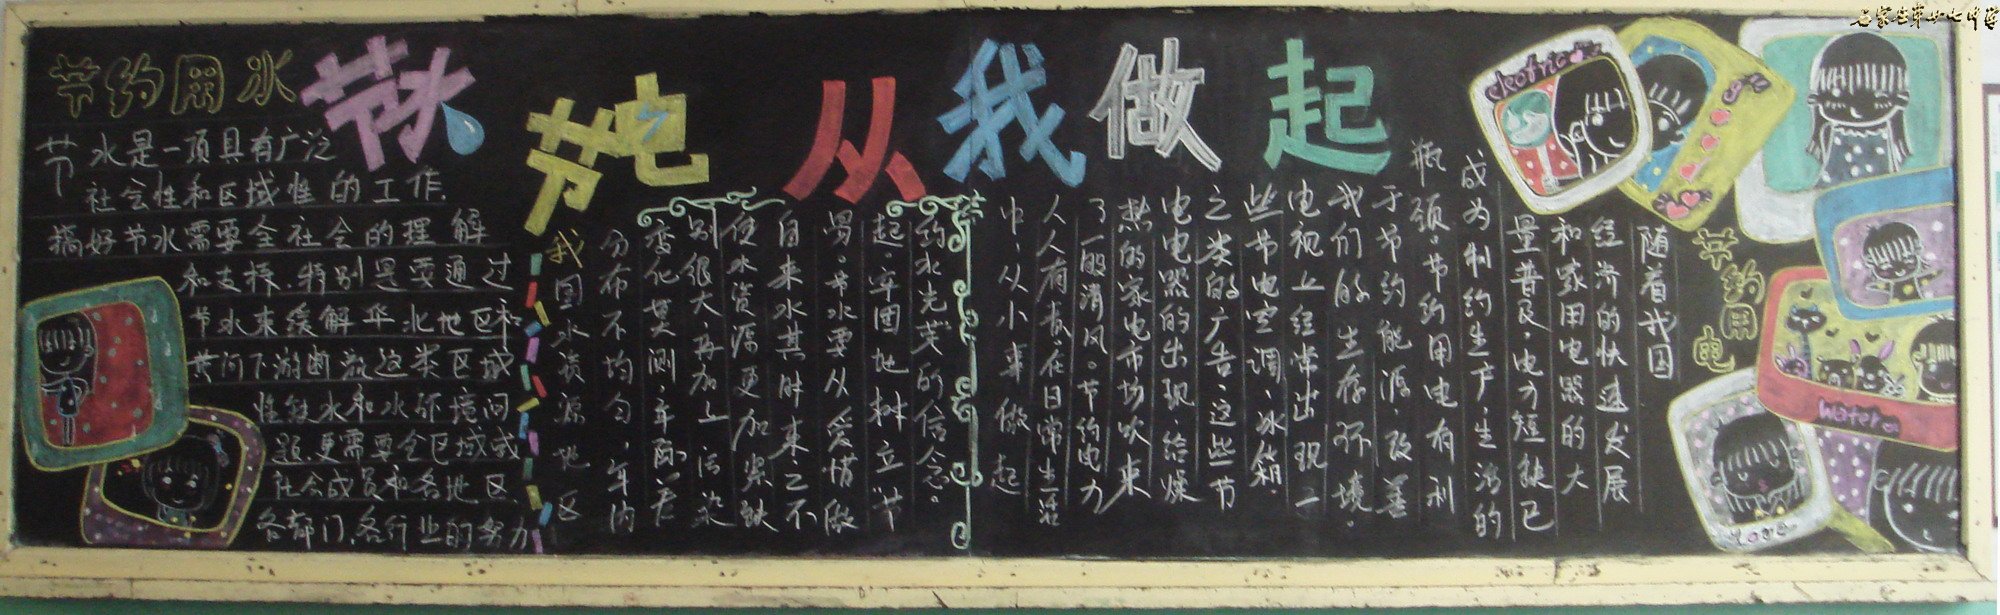 节水
节电
从我做起
节约用水
节水是一项具有广泛
社会性和区域性的工作.
搞好节水需要全社会的理解
和支持.特别是要通过
节水来缓解华北地区和
黄河下游断流这类区域
性缺水和水环境问
题.更需要全区域或
社会成员和各地区.
各部门.各行业的努力
我国水资源地区
分布不均匀,年内
变化莫测,年际差
别很大再加上污染
使水资源更加紧缺
自来水其时来之不
易。节水要从爱惜做
起.牢固地树立"节
约水光荣的信念。
节约用电
随着我国
经济的快速发展
和家用电器的大
量普及,电力短缺已
成为制约生产,生活的
瓶颈。节约用电有利
于节约能源,改善
我们的生存环境。
电视上经常出现一
些节电空调、冰箱.
之类的广告,这些节
电电器的出现给燥
热的家电市场吹来
了一股清风。节约电力
人人有责,在日常生活
中,从小事做起
electric
water
Love